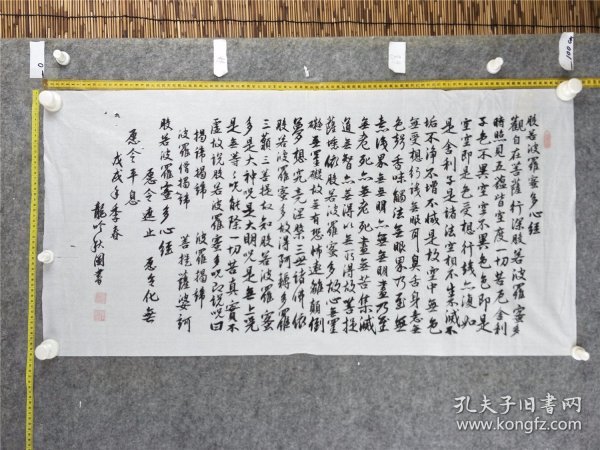 般若波羅蜜多心經
觀自在菩薩行深般若波羅蜜多
時照見五蘊皆空度一切苦厄舍利
子色不異空空不異色色即是
空空即是色受想行識亦復如
是舍利子是諸法空相不生不滅不
垢不淨不增不減是故空中無色
無受想行識無眼耳鼻舌身意無
色聲香味觸法無眼界乃至無
意識界無無明亦無無明盡乃至
無老死亦無老死盡無苦集滅
道無智亦無得以無所得故菩提
薩埵依般若波羅蜜多故心無罣
礙無罣礙故無有恐怖遠離顛倒
夢想究竟涅槃三世諸佛依
般若波羅蜜多故得阿耨多羅
三藐三菩提故知般若波羅蜜
多是大神咒是大明咒是無上咒
是無等等咒能除一切苦真實不
虛故說般若波羅蜜多咒即說咒曰
揭諦揭諦 波羅揭諦
波羅僧揭諦 菩提薩婆訶
般若波羅蜜多心經
愿令遮止 愿令化無
愿令平息
戊戌年季春
龍吟秋園書
0
100cm
孔夫子旧書网
www.kongfz.com